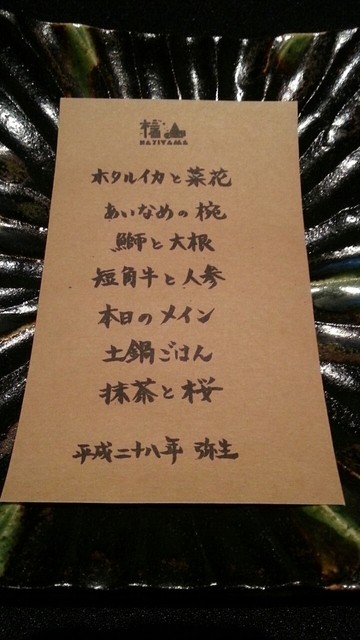 HAJIYAMA
ホタルイカと菜花
あいなめの椀
鰤と大根
短角牛と人参
本日のメイン
土鍋ごはん
抹茶と桜
平成二十八年 弥生